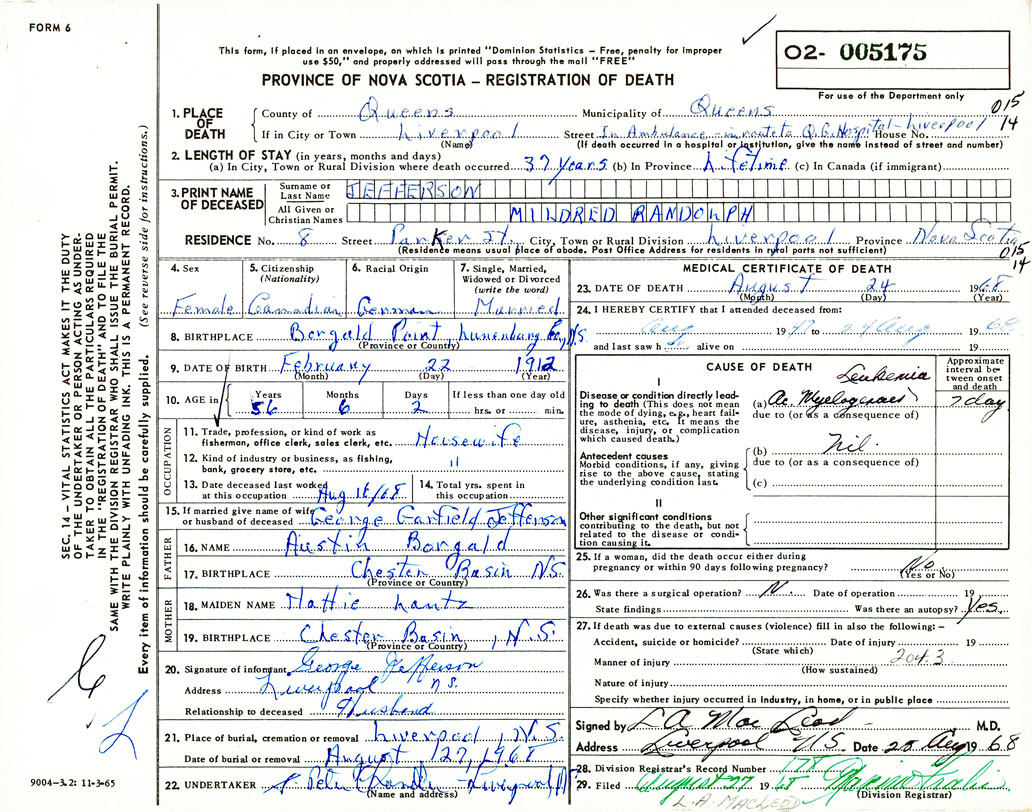 FORM 6
This form, if placed in an envelope, on which is printed "Dominion Statistics – Free, penalty for improper
use $50," and properly addressed will pass through the mail "FREE"
PROVINCE OF NOVA SCOTIA – REGISTRATION OF DEATH
02- 005175
For use of the Department only
015
14
1. PLACE OF DEATH
County of Queens Municipality of Queens
If in City or Town Liverpool Street In Ambulance - in route to Q.G. Hospital - Liverpool House No.
(Name) (If death occurred in a hospital or institution, give the name instead of street and number)
2. LENGTH OF STAY (in years, months and days)
(a) In City, Town or Rural Division where death occurred 37 years (b) In Province Lifetime (c) In Canada (if immigrant)
3. PRINT NAME OF DECEASED
Surname or Last Name JEFFERSON
All Given or Christian Names MILDRED RANDOLPH
RESIDENCE No. 8 Street Parker St. City, Town or Rural Division Liverpool Province Nova Scotia
(Residence means usual place of abode. Post Office Address for residents in rural parts not sufficient)
015
14
4. Sex 5. Citizenship (Nationality) 6. Racial Origin 7. Single, Married, Widowed or Divorced (write the word)
Female Canadian German Married
8. BIRTHPLACE Borgald Point, Lunenburg Co, N.S.
(Province or Country)
9. DATE OF BIRTH February 22 1912
(Month) (Day) (Year)
10. AGE in Years Months Days If less than one day old
56 6 2 hrs. or min.
OCCUPATION
11. Trade, profession, or kind of work as
fisherman, office clerk, sales clerk, etc. Housewife
12. Kind of industry or business, as fishing,
bank, grocery store, etc. "
13. Date deceased last worked
at this occupation Aug 16/68
14. Total yrs. spent in
this occupation
15. If married give name of wife
or husband of deceased George Garfield Jefferson
FATHER
16. NAME Austin Borgald
17. BIRTHPLACE Chester Basin N.S.
(Province or Country)
MOTHER
18. MAIDEN NAME Hattie Lantz
19. BIRTHPLACE Chester Basin, N.S.
(Province or Country)
20. Signature of informant George Jefferson
Address Liverpool N.S.
Relationship to deceased Husband
21. Place of burial, cremation or removal Liverpool, N.S.
Date of burial or removal August 27, 1968
22. UNDERTAKER Liverpool NS
(Name and address)
MEDICAL CERTIFICATE OF DEATH
23. DATE OF DEATH August 24 1968
(Month) (Day) (Year)
24. I HEREBY CERTIFY that I attended deceased from:
Aug 19 to 24 Aug 1968
and last saw h alive on 19
CAUSE OF DEATH
Approximate interval between onset and death
I
Disease or condition directly leading to death (This does not
mean the mode of dying, e.g., heart failure, asthenia, etc. It means the
disease, injury, or complication
which caused death.)
Leukemia
(a) Ac. Myelogenous 7 day
due to (or as a consequence of)
Antecedent causes
Morbid conditions, if any, giving
rise to the above cause, stating
the underlying condition last.
(b) Nil
due to (or as a consequence of)
(c)
II
Other significant conditions
contributing to the death, but not
related to the disease or condition causing it.
25. If a woman, did the death occur either during
pregnancy or within 90 days following pregnancy? No
(Yes or No)
26. Was there a surgical operation? N. Date of operation 19
State findings Was there an autopsy? Yes.
27. If death was due to external causes (violence) fill in also the following: –
Accident, suicide or homicide? Date of injury 19
(State which)
204.3
Manner of injury
(How sustained)
Nature of injury
Specify whether injury occurred in industry, in home, or in public place
Signed by L A Mac Leod M.D.
Address Liverpool N.S. Date 25 Aug 1968
28. Division Registrar's Record Number 178
29. Filed August 27 1968
(Division Registrar)
L.A. MACLEOD
SEC. 14 – VITAL STATISTICS ACT MAKES IT THE DUTY
OF THE UNDERTAKER OR PERSON ACTING AS UNDERTAKER TO OBTAIN ALL THE PARTICULARS REQUIRED
IN THE "REGISTRATION OF DEATH" AND TO FILE THE
SAME WITH THE DIVISION REGISTRAR WHO SHALL ISSUE THE BURIAL PERMIT.
WRITE PLAINLY WITH UNFADING INK. THIS IS A PERMANENT RECORD.
Every item of information should be carefully supplied. (See reverse side for instructions.)
9004-3.2: 11-3-65